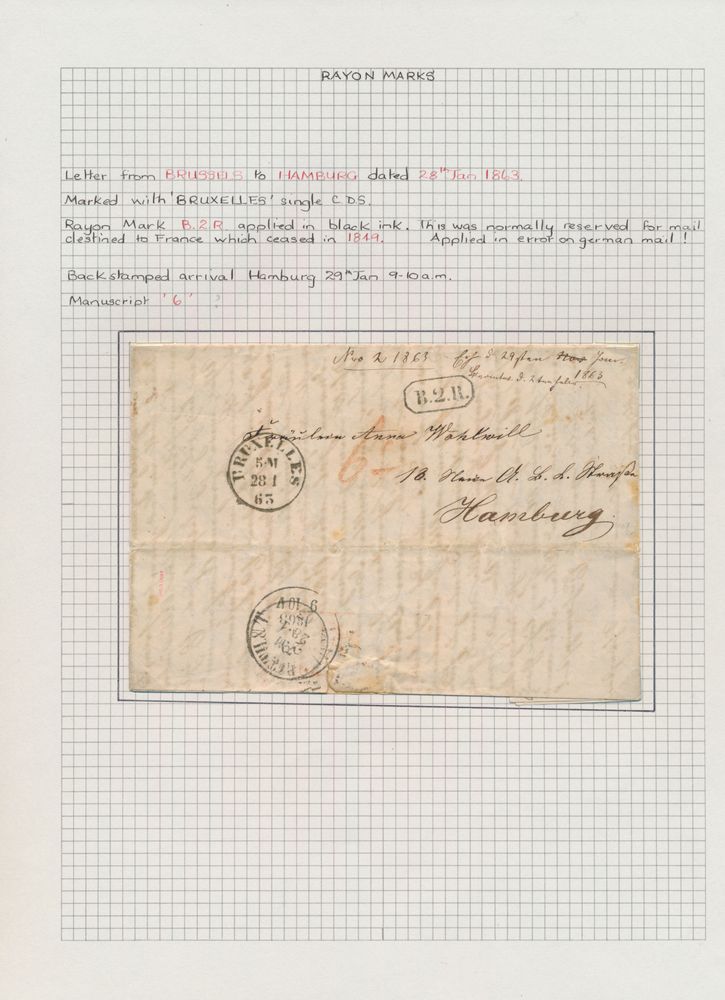 RAYON MARKS
Letter from BRUSSELS to HAMBURG dated 28th Jan 1863.
Marked with 'BRUXELLES' single C.D.S.
Rayon Mark B.2.R. applied in black ink. This was normally reserved for mail
destined to France which ceased in 1849. Applied in error on german mail !
Backstamped arrival Hamburg 29th Jan 9-10 a.m.
Manuscript '6' ?
Nro 2 1863
1863
B.2.R.
Fräulein Anna Wohlwill
BRUXELLES
5-M
28 1
63
6
Hamburg
9 10 V